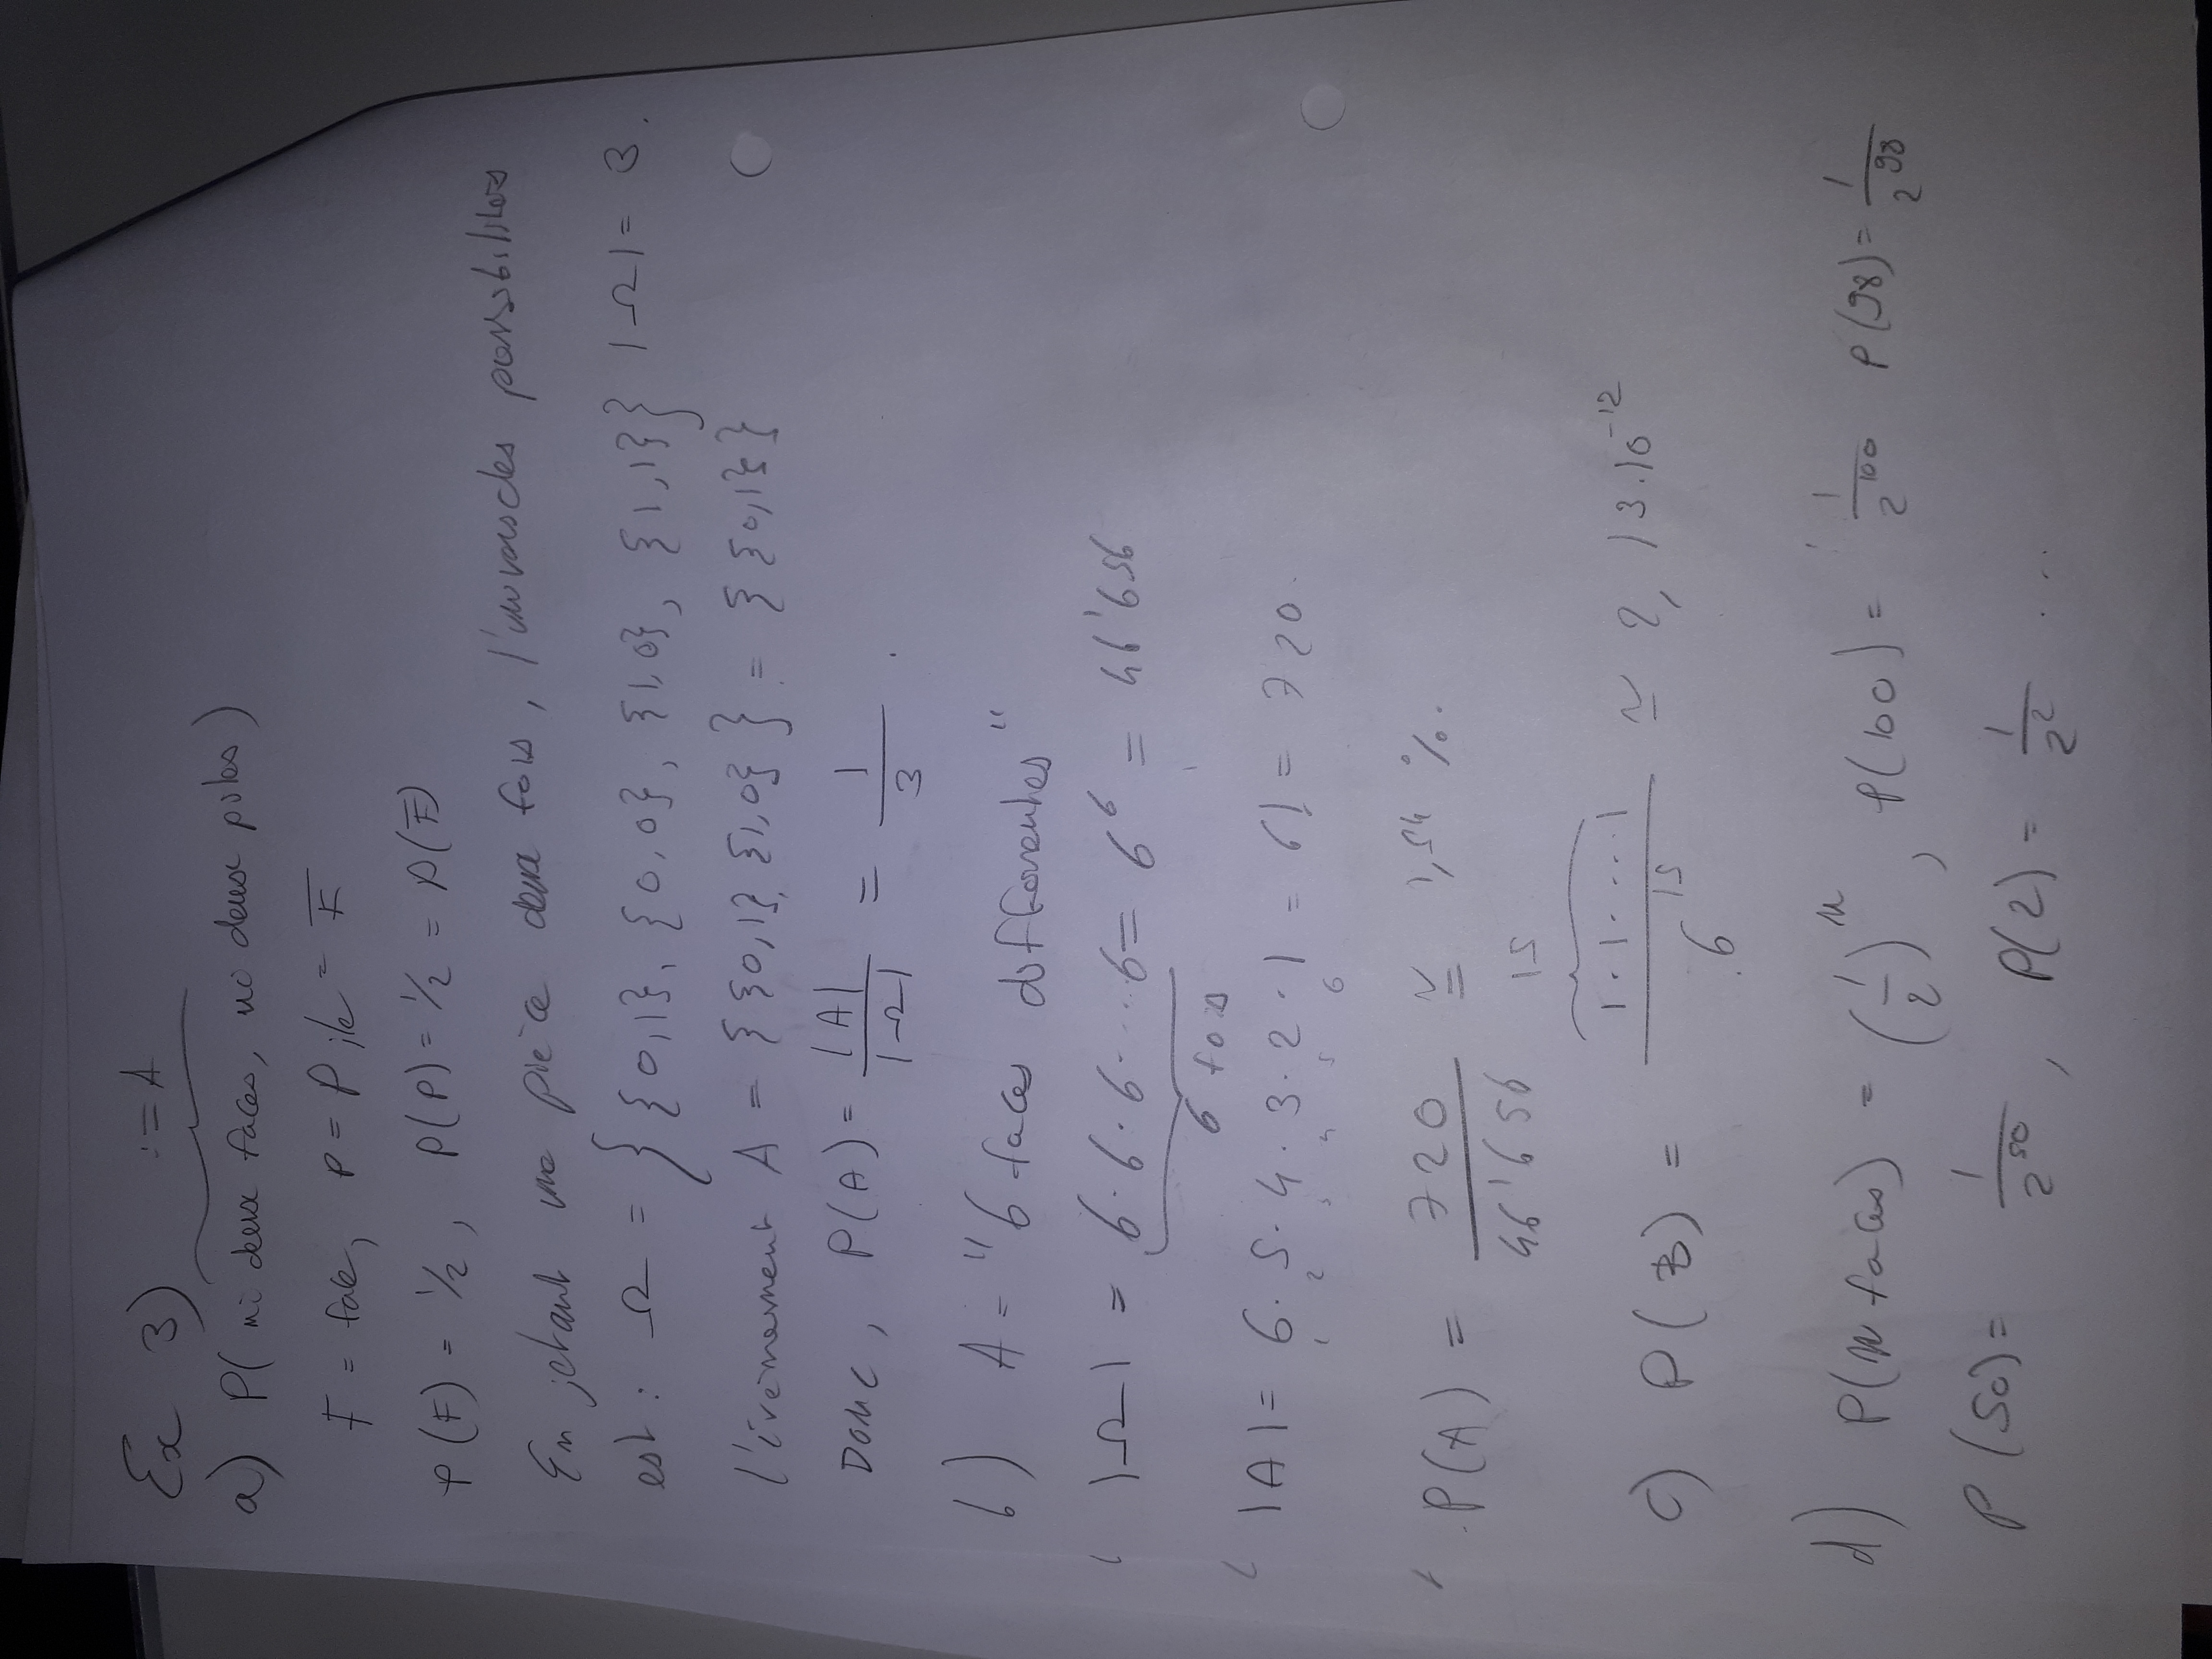 Ex 3) := A
a) P( ni deux faces, ni deux piles)
F = face, P = Pile = F̅
P(F) = 1/2, P(P) = 1/2 = P(F̅)
En jetant une pièce deux fois, l'univers des possibilités
est : Ω = { {0,1}, {0,0}, {1,0}, {1,1} } |Ω| = 3.
l'évènement A = { {0,1}, {1,0} } = { {0,1} }
Donc, P(A) = |A| / |Ω| = 1 / 3 .
b) A = "6 faces différentes"
|Ω| = 6 · 6 · 6 · ... 6 = 6^6 = 46'656
6 fois
|A| = 6 · 5 · 4 · 3 · 2 · 1 = 6! = 720.
1 2 3 4 5 6
P(A) = 720 / 46'656 ≅ 1,54 %.
15
c) P(B) = 1 · 1 · ... 1 / 6^15 ≃ 2,13 · 10^-12
d) P(n faces) = (1/2)^n , P(100) = 1 / 2^100 P(98) = 1 / 2^98
P(50) = 1 / 2^50 , P(2) = 1 / 2^2 ...